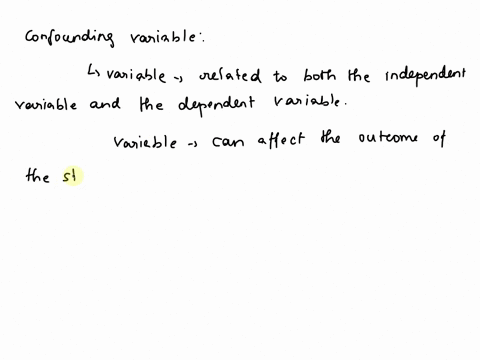 Confounding variable:
↳ variable → related to both the independent
variable and the dependent variable.
variable → can affect the outcome of
the st